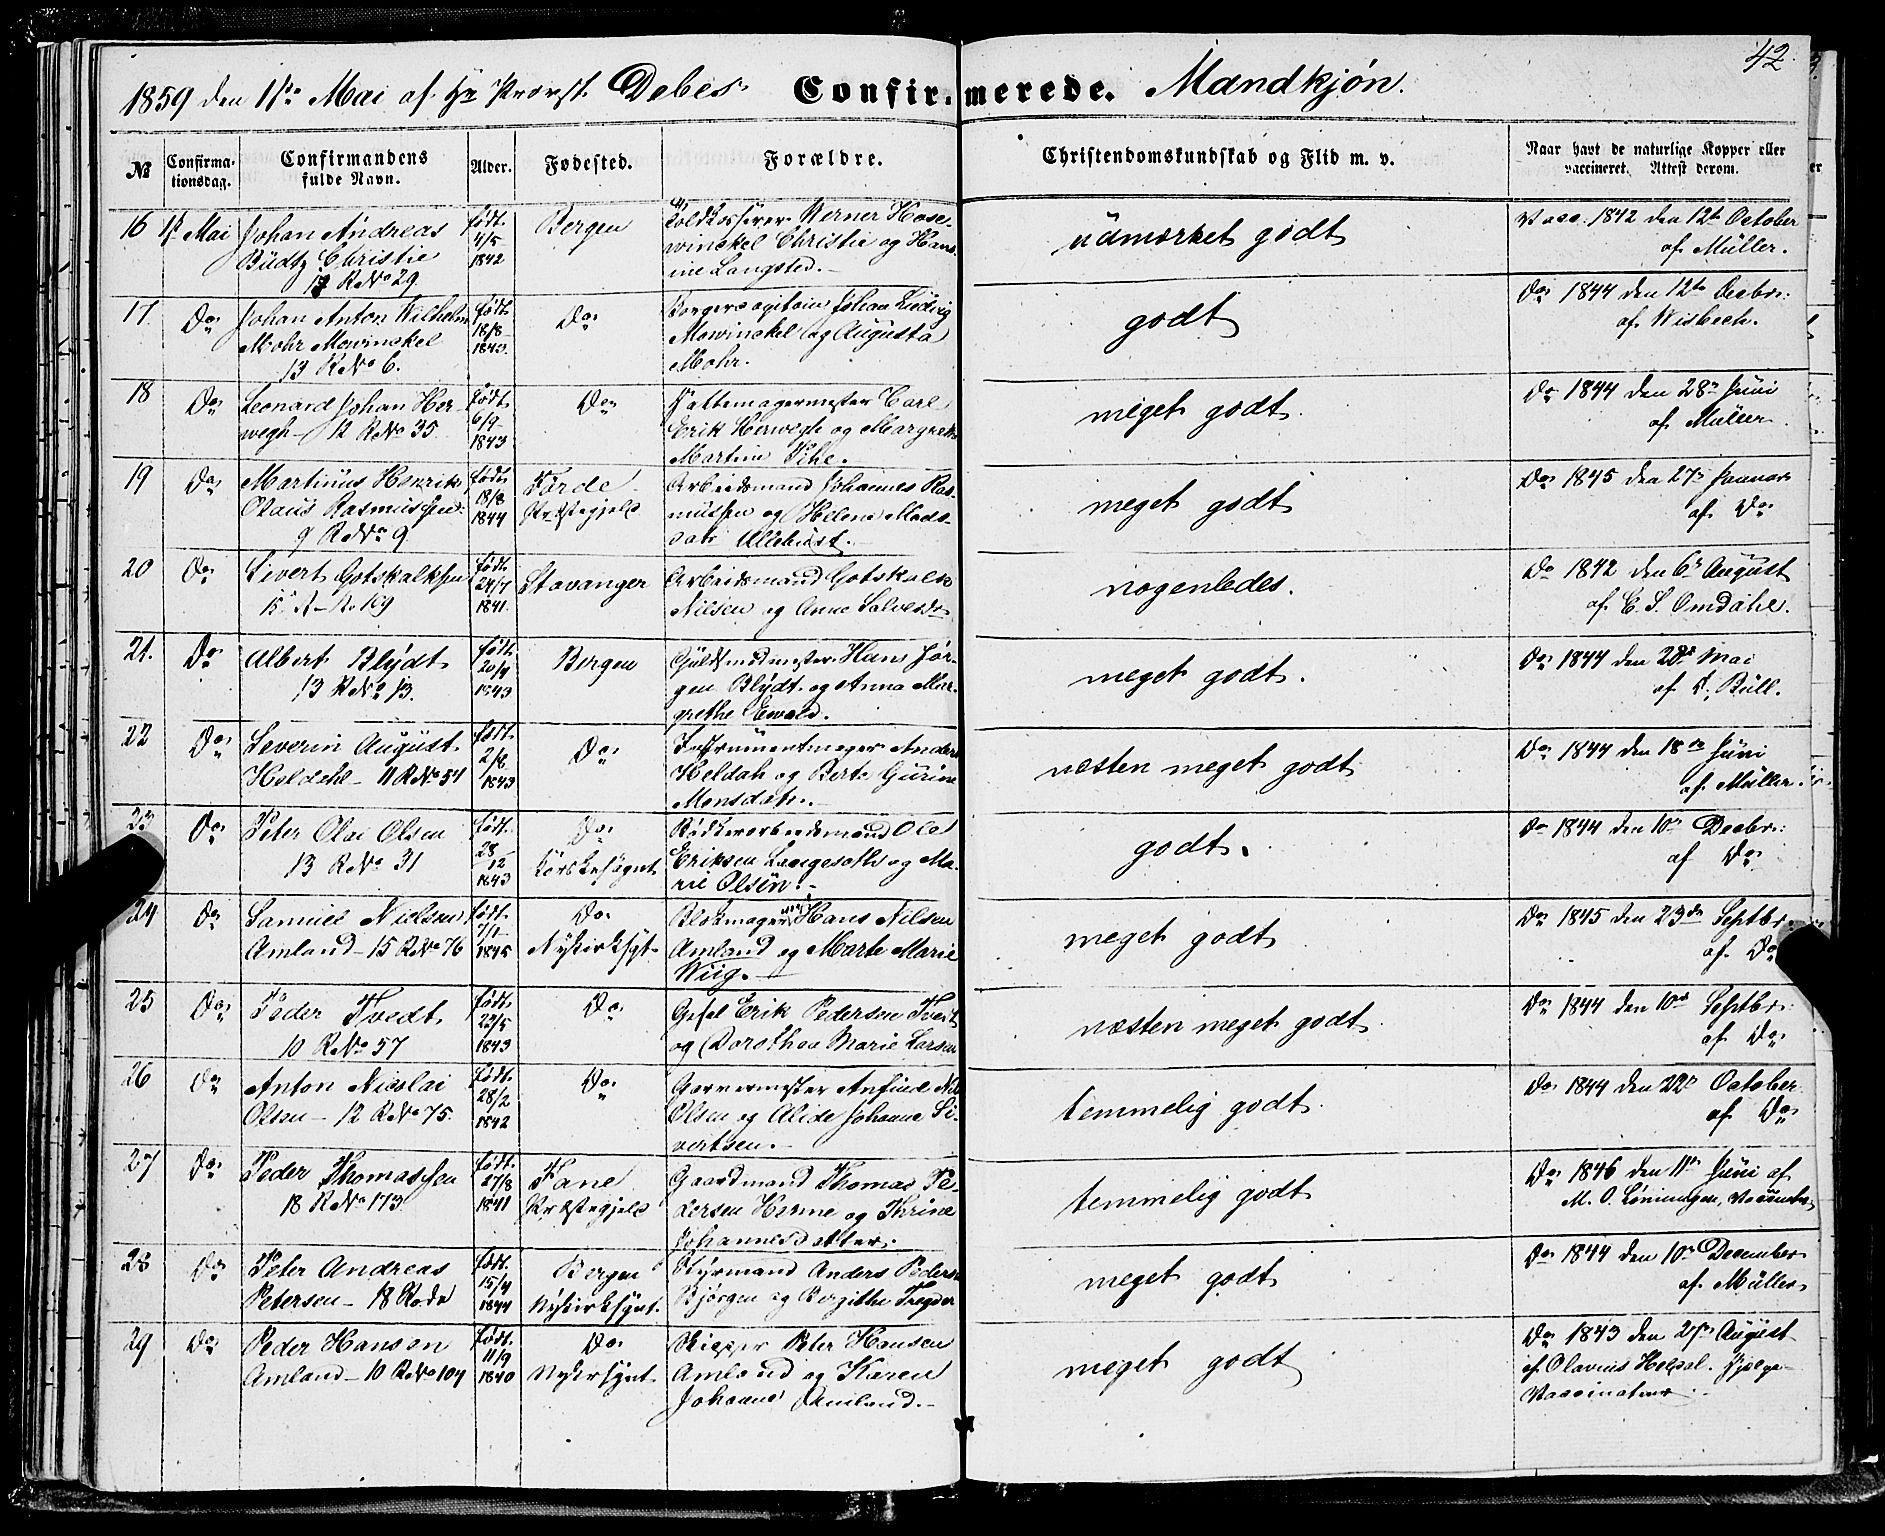 42.
1859 den 1ste Mai af Hr Provst Debes. Confirmerede. Mandkjøn.
№ Confirma-tionsdag. Confirmandens fulde Navn. Alder. Fødested. Forældre. Christendomskundskab og Flid m. v. Naar havt de naturlige Kopper eller vaccineret. Attest derom.
16 1ste Mai Johan Andreas født Bergen Toldkasserer Werner Hose- udmærket godt Vacc. 1842 den 12te October
Büdtz Christie 4/5 winckel Christie og Hans- af Müller.
13 R No 29 1842 ine Langsted.
17. Do Johan Anton Wilhelm født Do Borgercapitain Johan Ludvig godt Do 1844 den 12te Decbr:
Mohr Mowinckel 18/8 Mowinckel og Augusta af Wisbech.
13 R No 6. 1843. Mohr.
18 Do Leonard Johan Her- født Do Hattemagermester Carl meget godt. Do 1844 den 28de Juni
wegh 12 R No 35. 6/9 Erik Herwegh og Margrethe af Müller
1843 Martine Vihe.
19 Do Martinus Henrik født Førde Arbeidsmand Johannes Ras- meget godt Do 1845 den 27de Januar
Olaus Rasmussen 18/8 Præstegjeld mussen og Helene Mads- af Do
9 R No 9 1844 datr
20 Do Sivert Gotskalksen født Stavanger Arbeidsmand Gotskalk nogenledes. Do 1842 den 6te August
15 R No 169 24/7 Nilsen og Anne af C. S. Omdahl.
1841.
21. Do Albert Blydt født Bergen Guldsmedmester Hans Jør- meget godt. Do 1844 den 28de Mai
13 R No 13. 20/9 gen Blydt og Anna Mar- af Büll.
1843 grethe Ewald.
22 Do Severin August født Do Instrumentmager Anders næsten meget godt Do 1844 den 18de Juni
Heldahl 11 R No 54 2/8 Heldahl og Berte Gurine af Müller
1843 Monsdatr.
23 Do Peter Olai Olsen født Do Bødkerarbeidsmand Ole godt. Do 1844 den 10de Decbr:
13 R No 31 28/12 Korskesognet Eriksen Langesæth og Ma- af Do
1843 rie Olsen.
24 Do Samuel Nielsen født Do Blokmager Hans Nilsen meget godt Do 1845 den 23de Septbr:
Amland 15 R No 76 7/1 Nykirksgt. Amland og Marte Marie af Do
1845 Wiig.
25 Do Peder Tvedt født Do Gesel Erik Pedersen Tvedt næsten meget godt Do 1844 den 10de Septbr:
10 R No 57 22/5 og Dorothea Marie Larsen af Do
1843
26 Do Anton Nicolai født Do Garvermester Anfind temmelig godt. Do 1844 den 22de October
Olsen 12 R No 75. 28/2 Olsen og Alide Johanne Si- af Do
1842 vertsen.
27 Do Peder Thomassen født Fane Gaardmand Thomas Pe- temmelig godt Do 1846 den 11te Juni af
18 R No 173. 27/8 Præstegjeld dersen Horme og Thrine M. O.
1841 Johannesdatter.
28 Do Peter Andreas født Bergen Styrmand Anders Peders meget godt Do 1844 den 10de December
Petersen 18 Rode 15/4 Nykirksgnt. Bjørgen og Bergithe af Müller
1844
29 Do Peder Hansen født Do Skipper Peter Hansen meget godt Do 1843 den 27de August
Amland 10 R No 104 11/9 Nykrsgnt. Amland og Karen af Olavius
1840 Johanne Amland. Vaccinateur